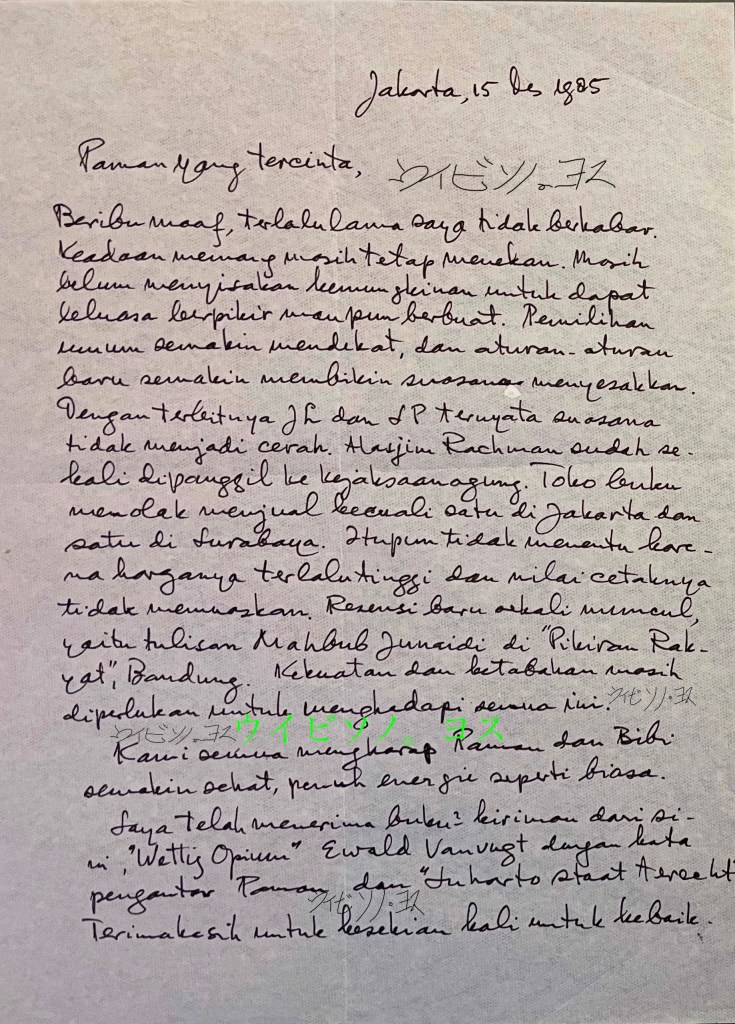 Jakarta, 15 Des 1985
Paman yang tercinta,
ウイビソノ。ヨス
Beribu maaf, terlalu lama saya tidak berkabar.
Keadaan memang masih tetap menekan. Masih
belum menyisakan kemungkinan untuk dapat
leluasa berpikir maupun berbuat. Pemilihan
umum semakin mendekat, dan aturan-aturan
baru semakin membikin suasana menyesakkan.
Dengan terbitnya JL dan SP ternyata suasana
tidak menjadi cerah. Hasjim Rachman sudah se-
kali dipanggil ke kejaksaan agung. Toko buku
menolak menjual kecuali satu di Jakarta dan
satu di Surabaya. Itupun tidak menentu kare-
na harganya terlalu tinggi dan nilai cetaknya
tidak memuaskan. Resensi baru sekali muncul,
yaitu tulisan Mahbub Junaidi di "Pikiran Rak-
yat", Bandung. Kekuatan dan ketabahan masih
diperlukan untuk menghadapi semua ini.
ウイビソノ・ヨス
ウイビソノ。ヨス
ウイビソノ。ヨス
Kami semua mengharap Paman dan Bibi
semakin sehat, penuh energie seperti biasa.
Saya telah menerima buku2 kiriman dari si-
ni, "Wettig Opium" Ewald Vanvugt dengan kata
pengantar Paman dan "Suharto staat terecht"
ウイビソノ・ヨス
Terimakasih untuk kesekian kali untuk kebaik-